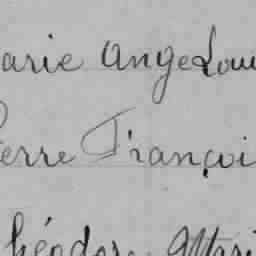 arie Ange Lou
ierre Françoi
héodore Mari